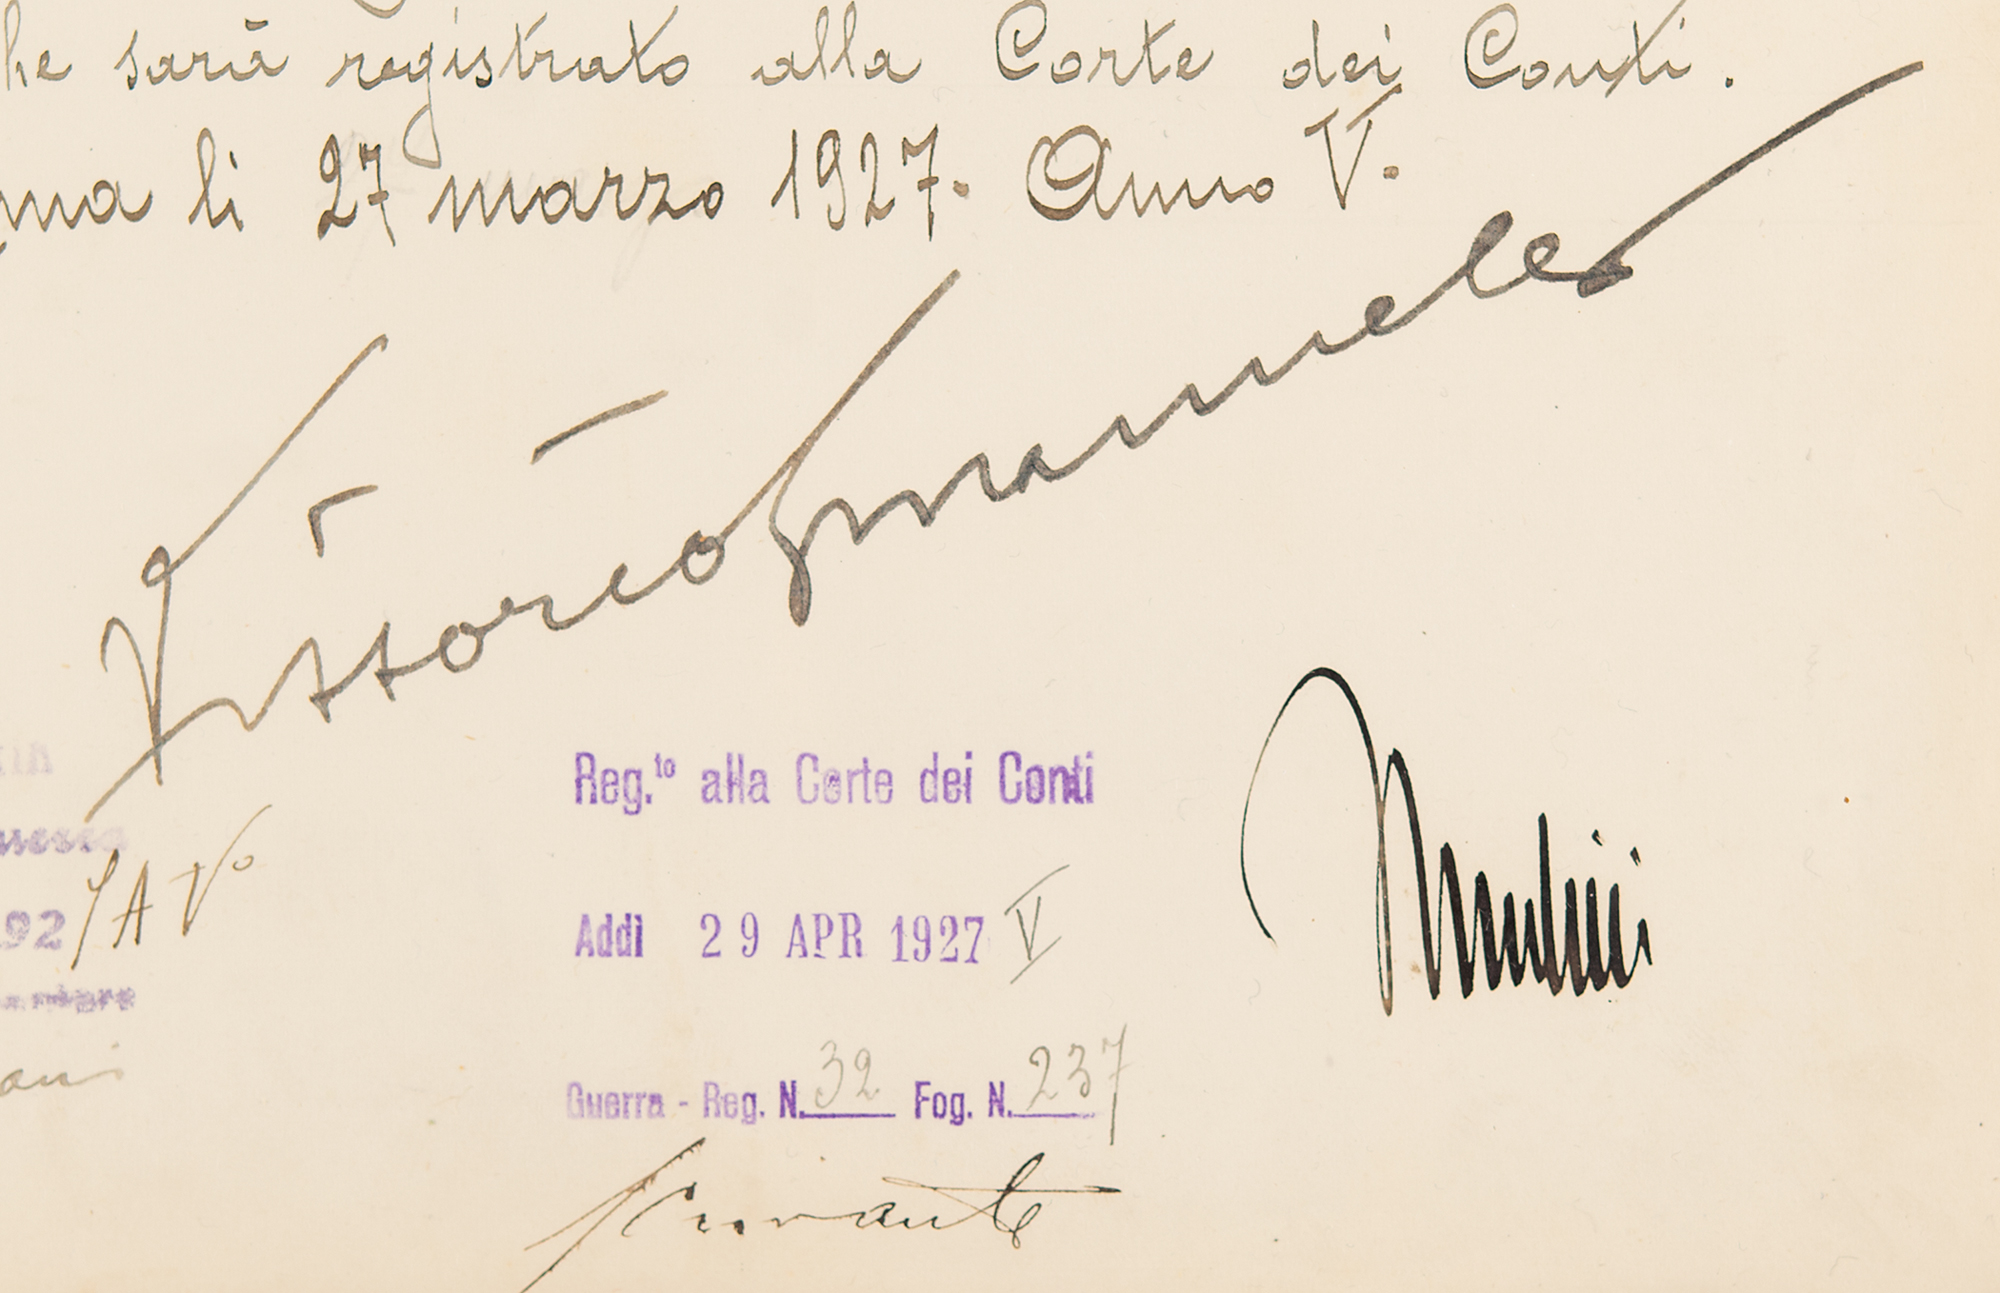 he sarà registrato alla Corte dei Conti.
ma li 27 marzo 1927. Anno V.
Vittorio Emanuele
Mussolini
Reg.to alla Corte dei Conti
Addì 29 APR 1927 V
Guerra - Reg. N. 32 Fog. N. 237
92 / A V°